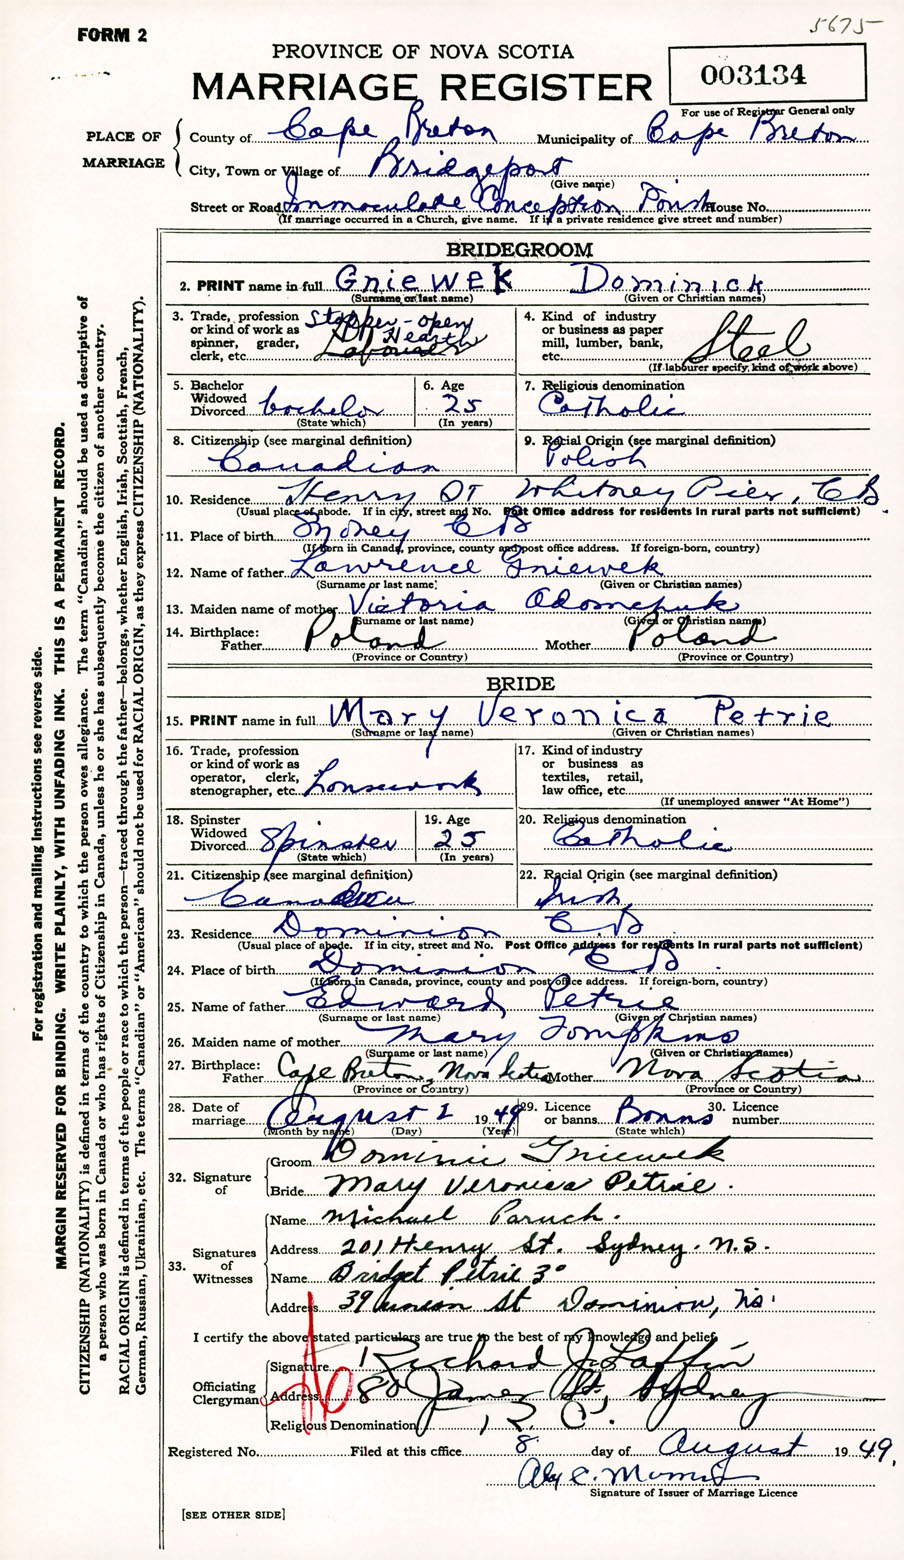 5675
FORM 2
PROVINCE OF NOVA SCOTIA
MARRIAGE REGISTER
003134
For use of Registrar General only
PLACE OF MARRIAGE
County of Cape Breton Municipality of Cape Breton
City, Town or Village of Bridgeport
(Give name)
Street or Road Immaculate Conception House No.
(If marriage occurred in a Church, give name. If in a private residence give street and number)
BRIDEGROOM
2. PRINT name in full Gniewek Dominick
(Surname or last name) (Given or Christian names)
3. Trade, profession or kind of work as spinner, grader, clerk, etc. Stopper - open Hearth
4. Kind of industry or business as paper mill, lumber, bank, etc. Steel
(If labourer specify kind of work above)
5. Bachelor Widowed Divorced bachelor
(State which)
6. Age 25
(In years)
7. Religious denomination Catholic
8. Citizenship (see marginal definition) Canadian
9. Racial Origin (see marginal definition) Polish
10. Residence Henry St Whitney Pier, C B
(Usual place of abode. If in city, street and No. Post Office address for residents in rural parts not sufficient)
11. Place of birth Sydney C B
(If born in Canada, province, county and post office address. If foreign-born, country)
12. Name of father Lawrence Gniewek
(Surname or last name) (Given or Christian names)
13. Maiden name of mother Victoria
(Surname or last name) (Given or Christian names)
14. Birthplace: Father Poland Mother Poland
(Province or Country) (Province or Country)
BRIDE
15. PRINT name in full Mary Veronica Petrie
(Surname or last name) (Given or Christian names)
16. Trade, profession or kind of work as operator, clerk, stenographer, etc. housework
17. Kind of industry or business as textiles, retail, law office, etc.
(If unemployed answer "At Home")
18. Spinster Widowed Divorced Spinster
(State which)
19. Age 25
(In years)
20. Religious denomination Catholic
21. Citizenship (see marginal definition) Canadian
22. Racial Origin (see marginal definition) Irish
23. Residence Dominion C B
(Usual place of abode. If in city, street and No. Post Office address for residents in rural parts not sufficient)
24. Place of birth Dominion C B
(If born in Canada, province, county and post office address. If foreign-born, country)
25. Name of father Edward Petrie
(Surname or last name) (Given or Christian names)
26. Maiden name of mother Mary Tompkins
(Surname or last name) (Given or Christian names)
27. Birthplace: Father Cape Breton, Nova Scotia Mother Nova Scotia
(Province or Country) (Province or Country)
28. Date of marriage August 1 1949
(Month by name) (Day) (Year)
29. Licence or banns Banns
(State which)
30. Licence number
32. Signature of
Groom Dominic Gniewek
Bride Mary Veronica Petrie.
33. Signatures of Witnesses
Name Michael Paruch.
Address 201 Henry St. Sydney. N.S.
Name Bridget Petrie
Address 39 Union St Dominion, NS.
I certify the above stated particulars are true to the best of my knowledge and belief.
Officiating Clergyman
Signature Richard J. Laffin
Address 80 James St. Sydney
Religious Denomination R. C.
Registered No. Filed at this office 8 day of August 1949,
Signature of Issuer of Marriage Licence
[SEE OTHER SIDE]
For registration and mailing instructions see reverse side.
MARGIN RESERVED FOR BINDING. WRITE PLAINLY, WITH UNFADING INK. THIS IS A PERMANENT RECORD.
CITIZENSHIP (NATIONALITY) is defined in terms of the country to which the person owes allegiance. The term "Canadian" should be used as descriptive of
a person who was born in Canada or who has rights of Citizenship in Canada, unless he or she has subsequently become the citizen of another country.
RACIAL ORIGIN is defined in terms of the people or race to which the person—traced through the father—belongs, whether English, Irish, Scottish, French,
German, Russian, Ukrainian, etc. The terms "Canadian" or "American" should not be used for RACIAL ORIGIN, as they express CITIZENSHIP (NATIONALITY).